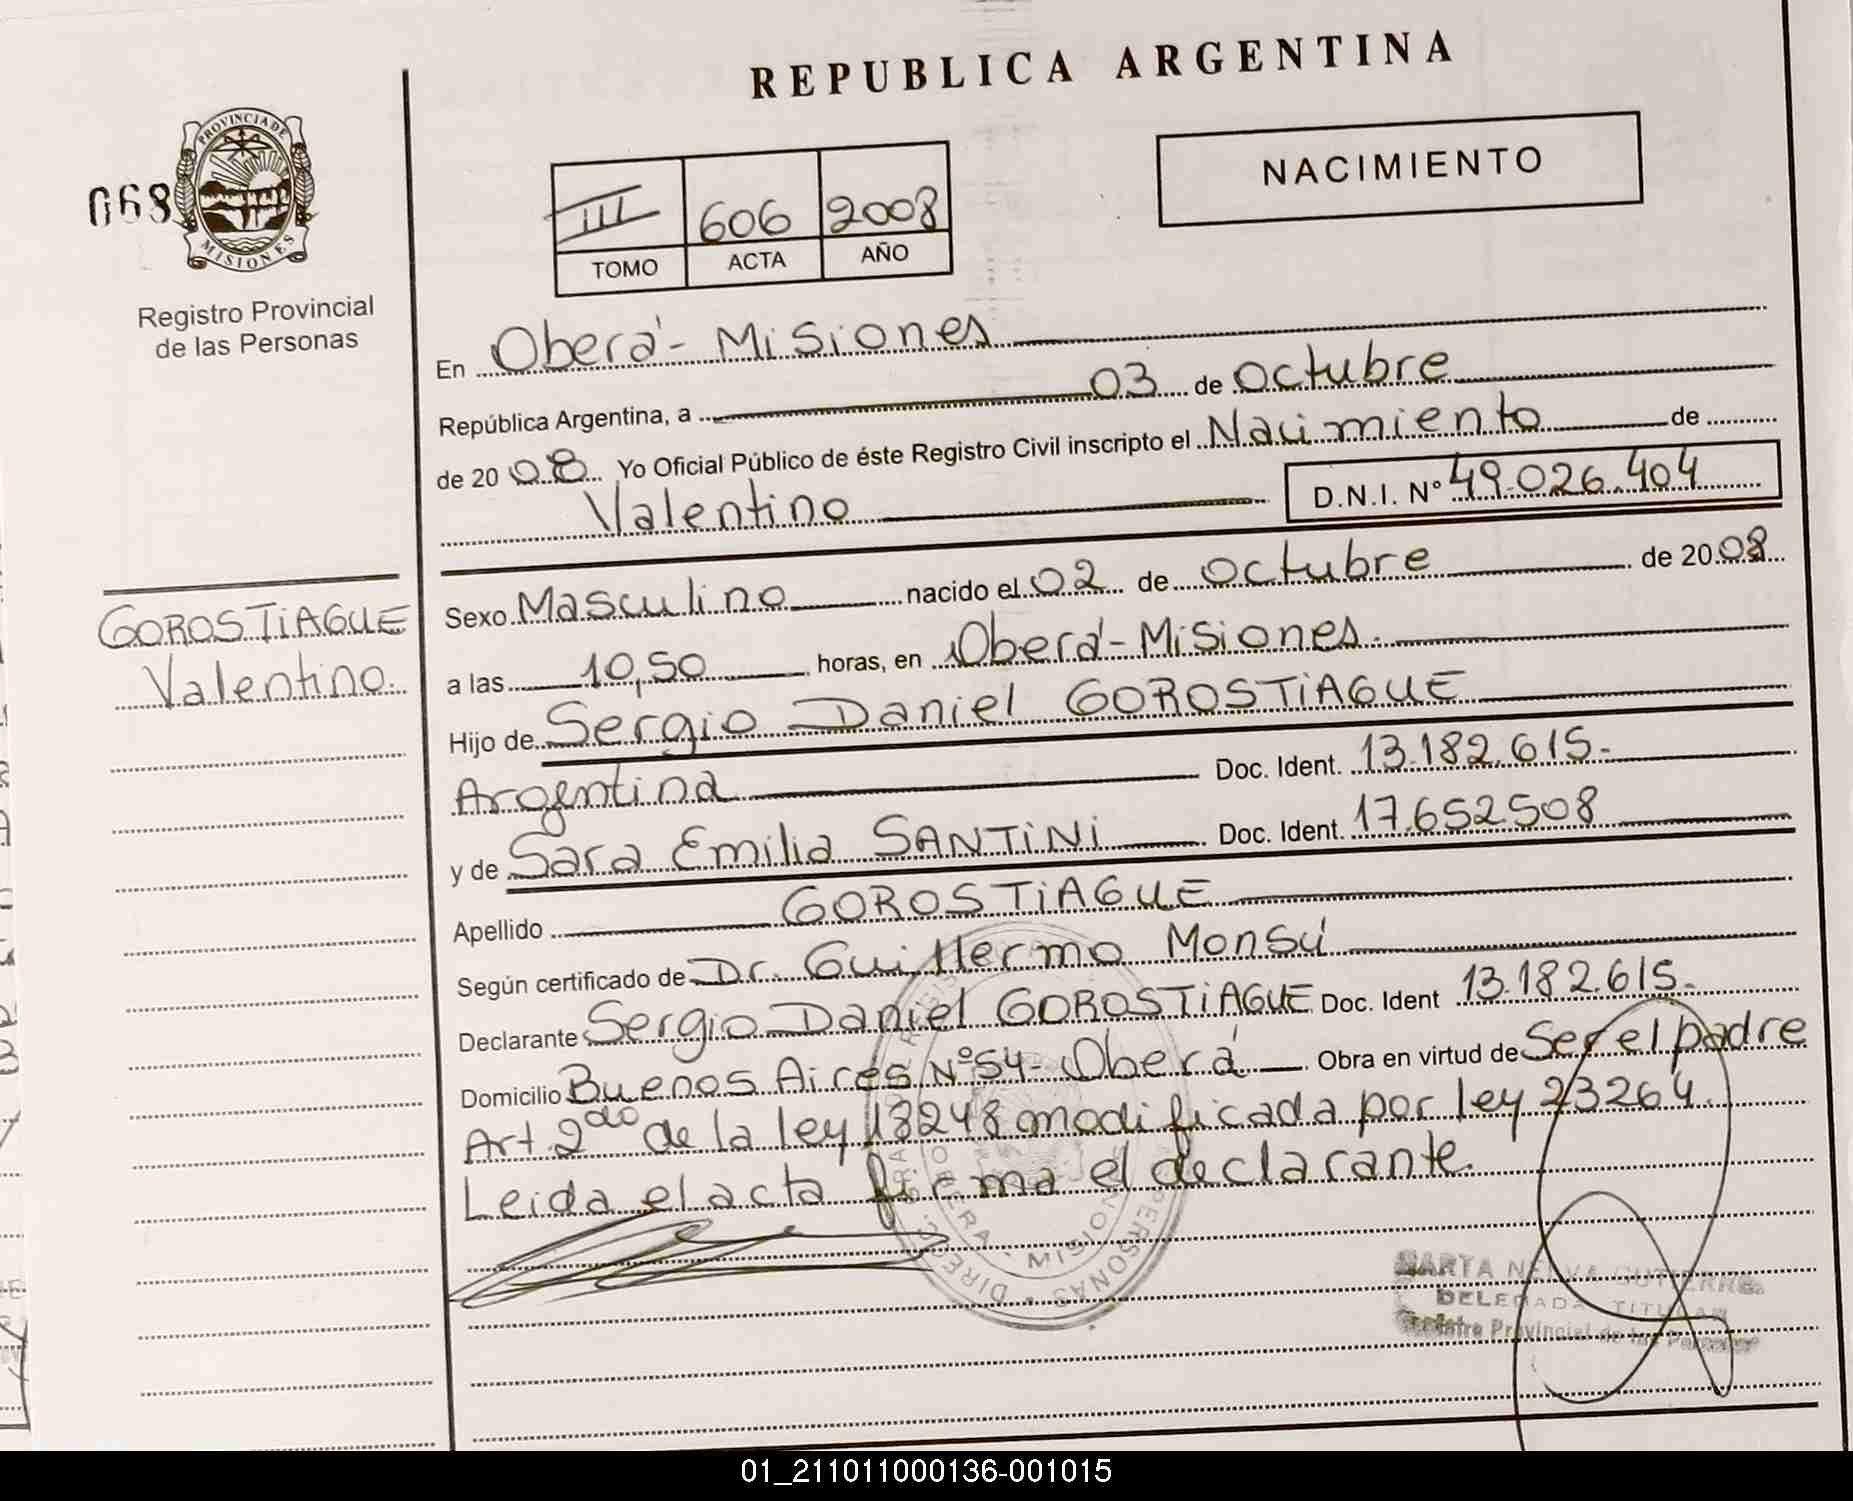 REPUBLICA ARGENTINA
PROVINCIA DE
MISIONES
068
Registro Provincial
de las Personas
III 606 2008
TOMO ACTA AÑO
NACIMIENTO
En Oberá - Misiones
República Argentina, a 03 de octubre
de 2008 Yo Oficial Público de éste Registro Civil inscripto el Nacimiento de
Valentino D.N.I. Nº 49.026.404
GOROSTIAGUE
Valentino.
Sexo Masculino nacido el 02 de octubre de 2008
a las 10,50 horas, en Oberá - Misiones.
Hijo de Sergio Daniel GOROSTIAGUE
Argentina Doc. Ident. 13.182.615.-
y de Sara Emilia SANTINI Doc. Ident. 17.652508
Apellido GOROSTIAGUE
Según certificado de Dr. Guillermo Monsú
Declarante Sergio Daniel GOROSTIAGUE Doc. Ident 13.182.615.-
Domicilio Buenos Aires Nº 54- Oberá Obra en virtud de Ser el padre
Art 2do de la ley 18248 modificada por ley 23264.
Leida el acta firma el declarante.
OBERA - MISIONES
PERSONAS
DELEGADA TITULAR
Registro Provincial de las Personas
01_211011000136-001015